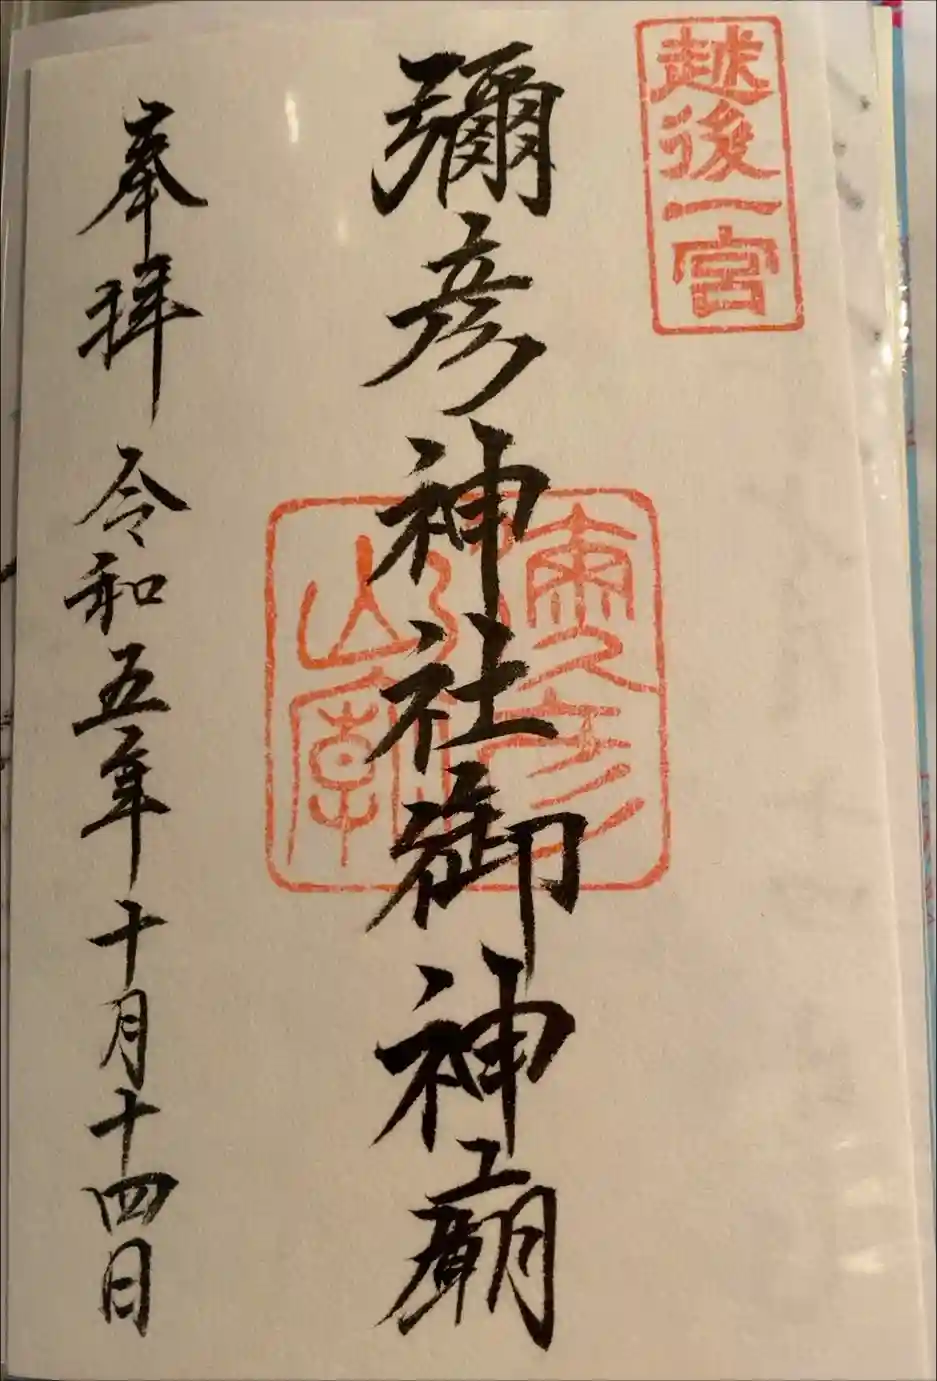 越後一宮
彌彦神社御神廟
彌彦
山廟
奉拝 令和五年十月十四日